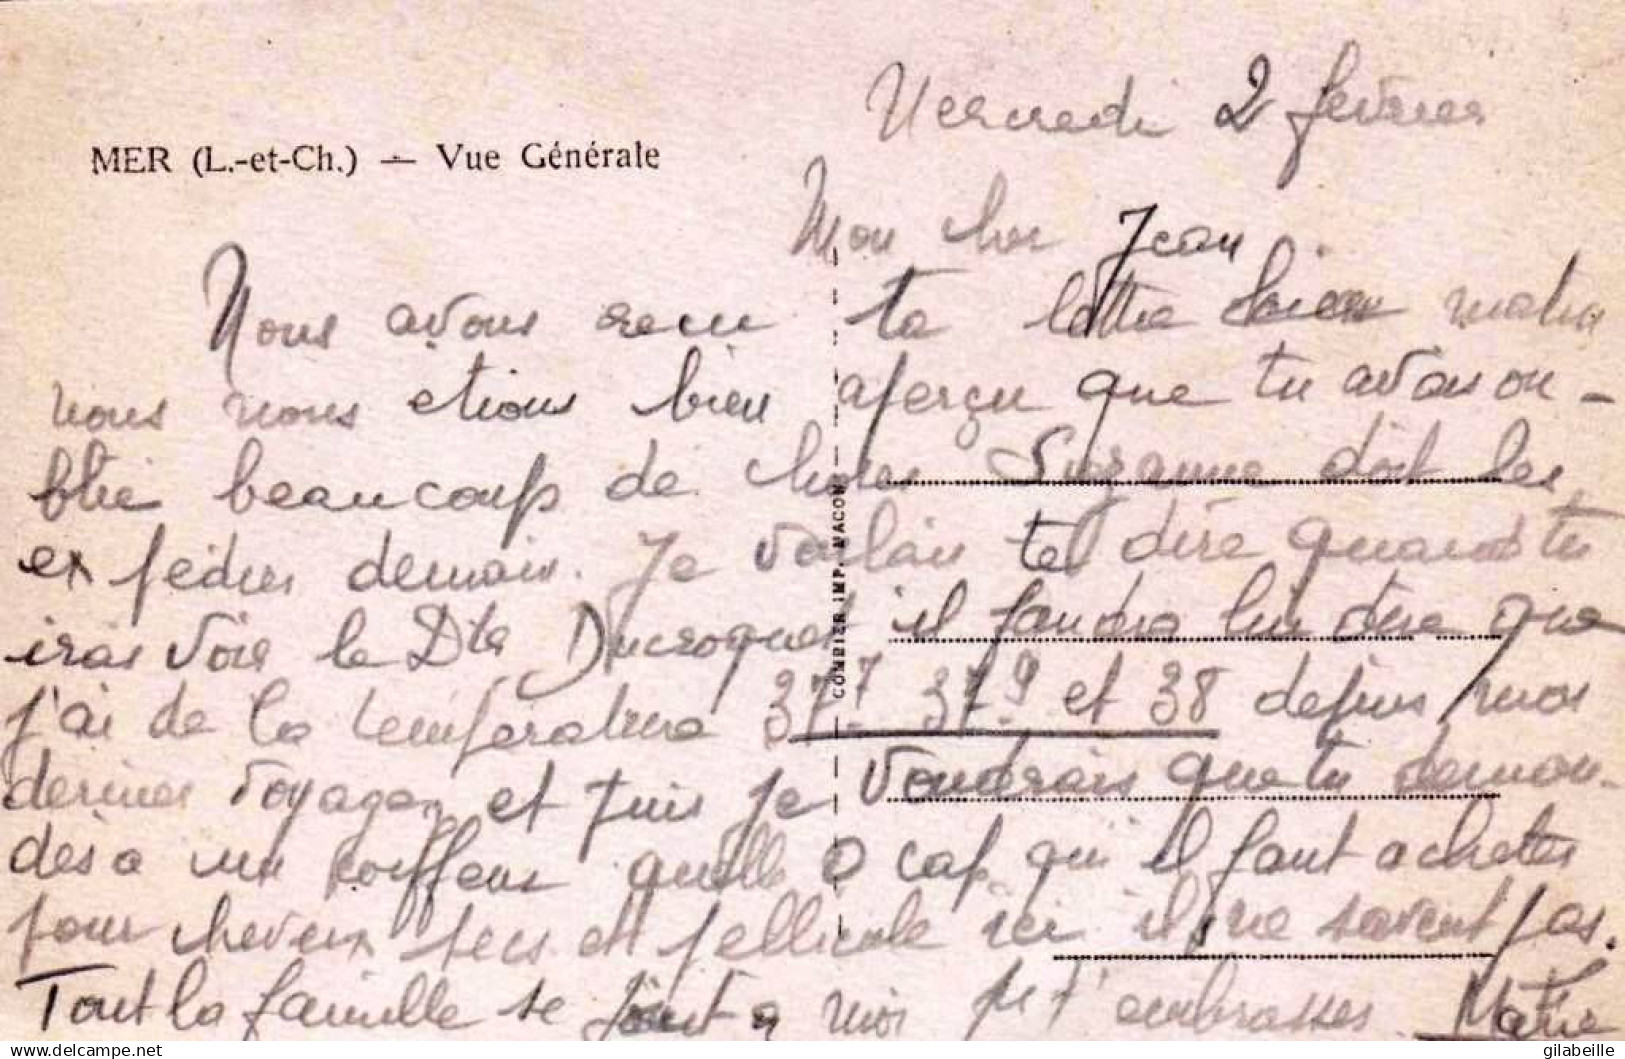 MER (L.-et-Ch.) — Vue Générale
Mercredi 2 fevrier
Mon cher Jean
Nous avons recu ta lettre hier matin
nous nous etions bien aperçu que tu avais ou-
blie beaucoup de choses Suzanne doit les
expedier demain. Je voulais te dire quand tu
iras voir le Dte Ducroquet il faudra lui dire que
j'ai de la temperature 37.7 37.9 et 38 depuis mon
dernier voyage, et puis je voudrais que tu deman-
des a un coiffeur quelle O cap qu'il faut acheter
pour cheveux secs et pellicule ici il ne savent pas.
Tout la famille se joint a moi pr t'embrasser
COMBIER IMP. MACON
gilabeille